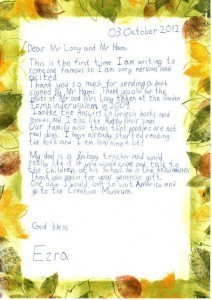 03 October 2012
Dear Mr Looy and Mr Ham.
This is the first time I am writing to
someone famous so I am very nervous and
excited.
Thank you so much for sending a book
signed by Mr Ham! Thank you also for the
photo of Mr and Mrs Looy taken at the Garden
Tomb in Jerusalem in 2009.
I like the Answers In Genesis books and
movies and I also like Buddy
Our family also thinks that are not
real dogs. I have already started reading
the book and I am learning a lot!
My dad is a Biology teacher and would
really like it if you would come and talk to
the children at his School he is the headmaster.
Thank you again for your generous gift.
One day I would love to visit America and
go to the Creation Museum.
God bless
Ezra